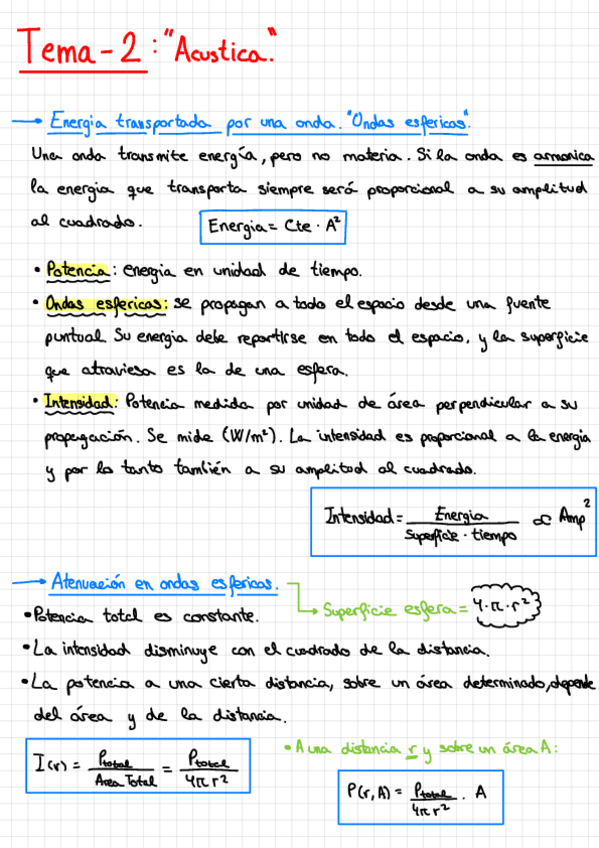 Tema-2: "Acustica".
→ Energia transportada por una onda. "Ondas esfericas".
Una onda transmite energía, pero no materia. Si la onda es armonica
la energia que transporta siempre será proporcional a su amplitud
al cuadrado.
Energia = Cte · A²
• Potencia: energia en unidad de tiempo.
• Ondas esfericas: se propagan a todo el espacio desde una fuente
puntual. Su energia debe repartirse en todo el espacio, y la superficie
que atraviesa es la de una esfera.
• Intensidad: Potencia medida por unidad de área perpendicular a su
propagación. Se mide (W/m²). La intensidad es proporcional a la energia
y por lo tanto también a su amplitud al cuadrado.
Intensidad = Energia / Superficie · tiempo ∝ Amp²
→ Atenuación en ondas esfericas.
→ Superficie esfera = 4·π·r²
• Potencia total es constante.
• La intensidad disminuye con el cuadrado de la distancia.
• La potencia a una cierta distancia, sobre un área determinado, depende
del área y de la distancia.
I(r) = Ptotal / Area Total = Ptotal / 4πr²
• A una distancia r y sobre un área A:
P(r,A) = Ptotal / 4πr² · A